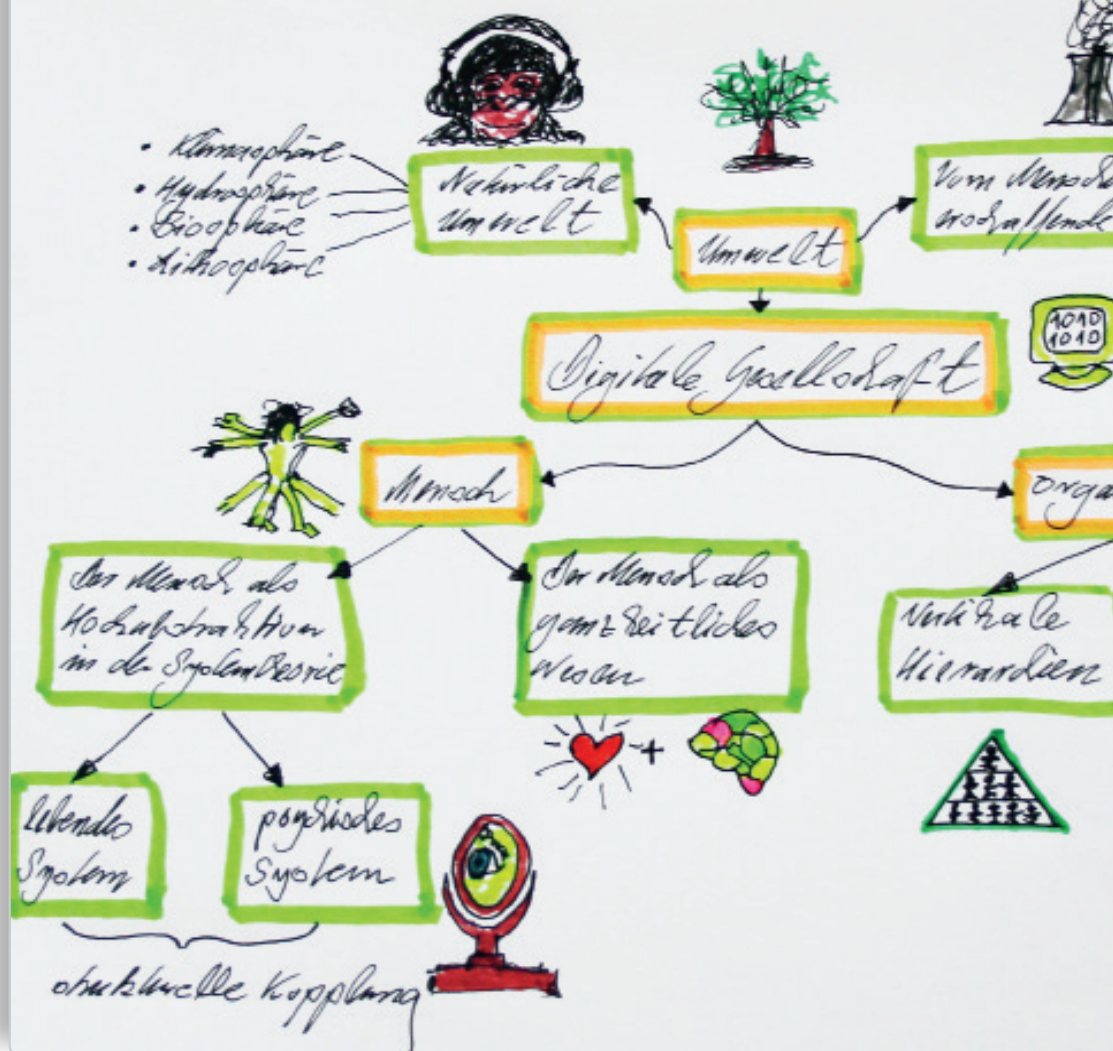 • Klimasphäre
• Hydrosphäre
• Biosphäre
• Lithosphäre
Natürliche
Umwelt
Umwelt
Vom Mensch
erschaffende
Digitale Gesellschaft
1010
1010
Mensch
Orga
Der Mensch als
in der Systemtheorie
Der Mensch als
ganzheitliches
Wesen
Vertikale
Hierarchien
lebendes
System
psychisches
System
strukturelle Kopplung